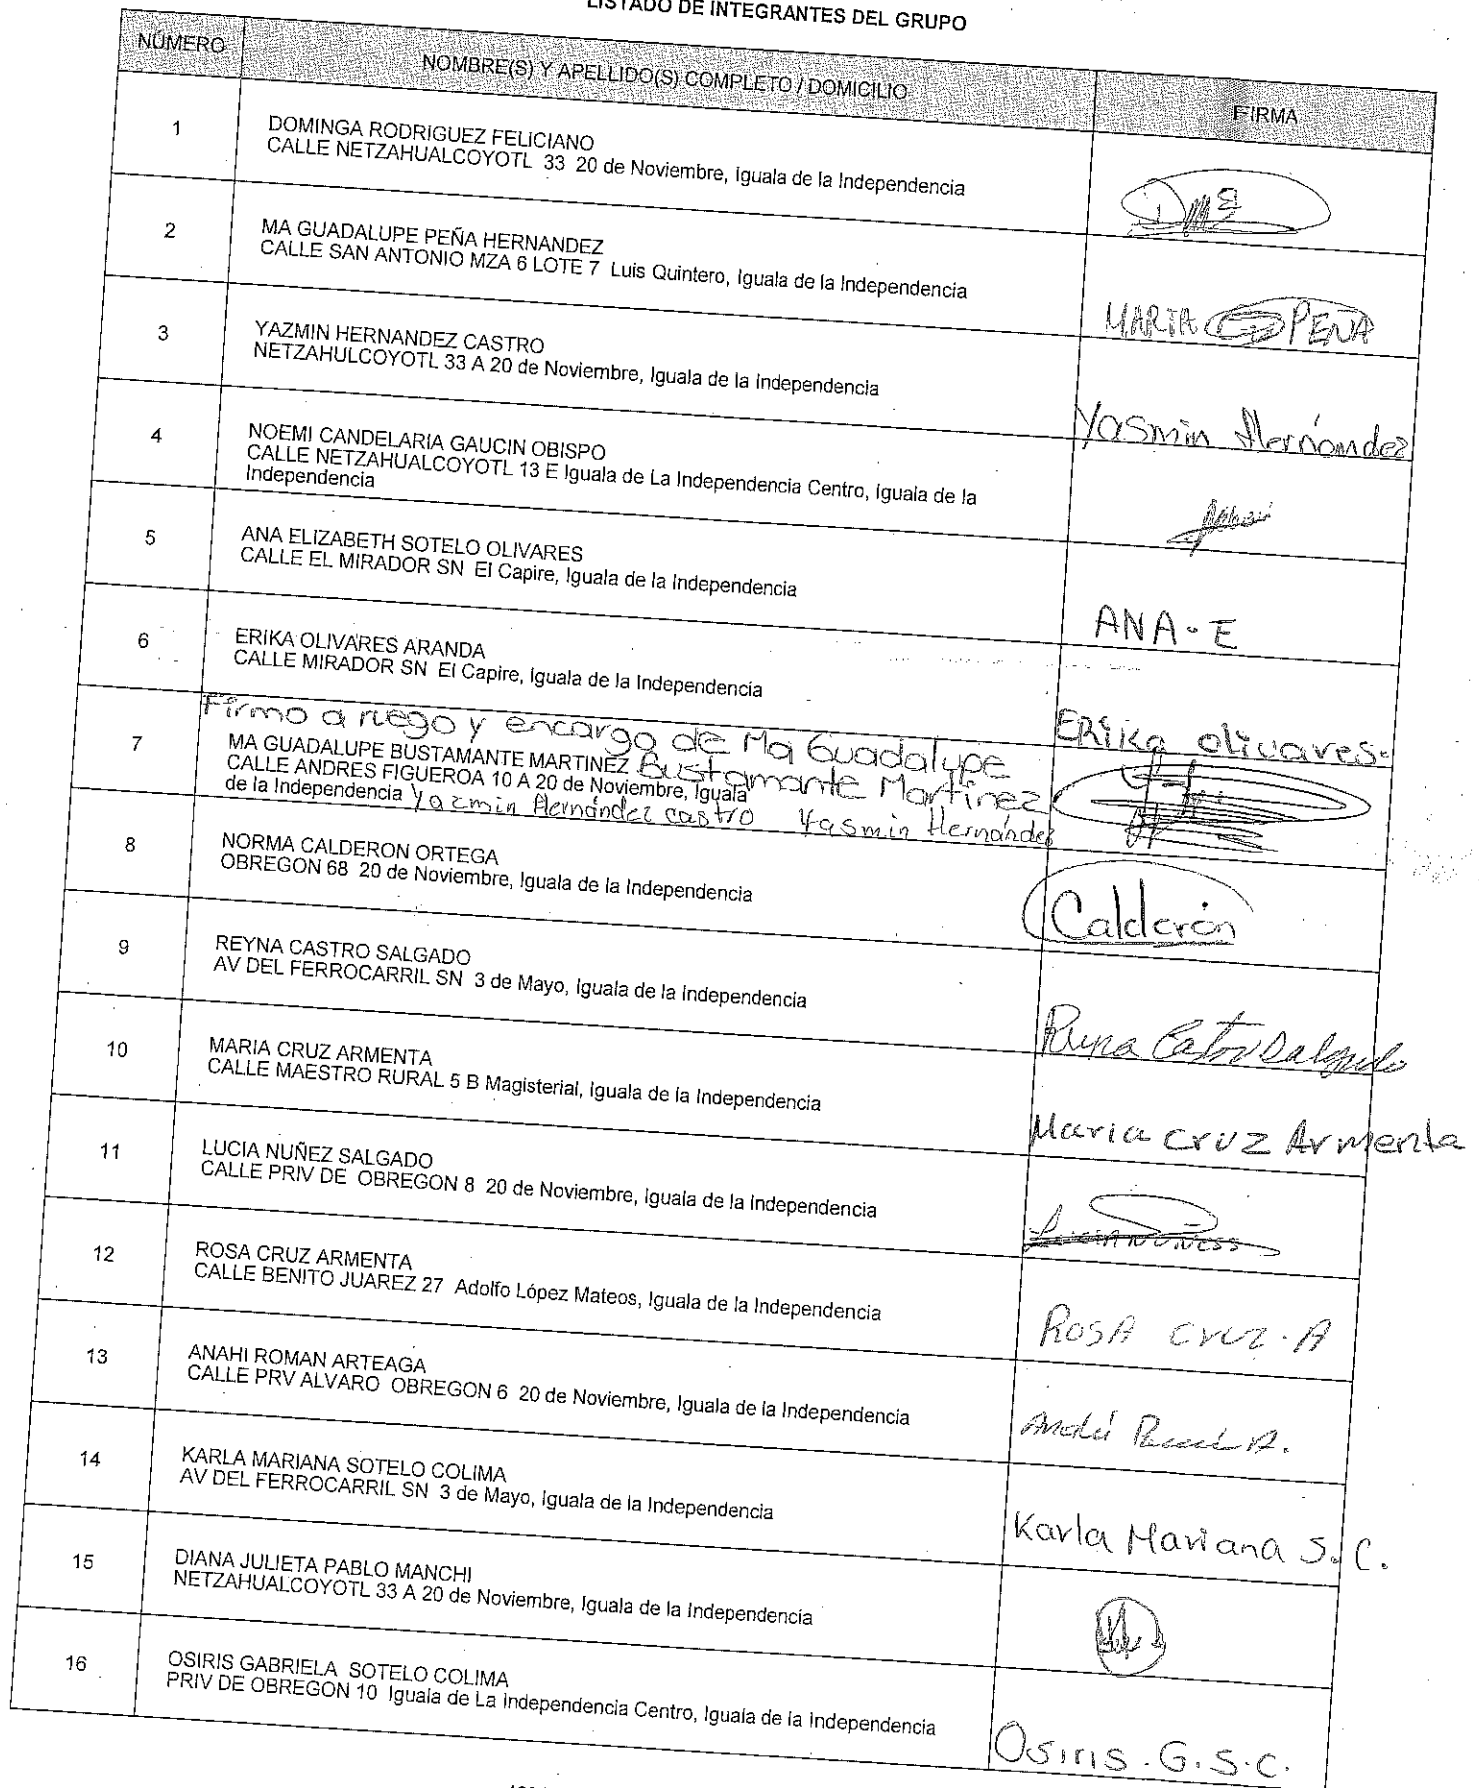 LISTADO DE INTEGRANTES DEL GRUPO
NÚMERO NOMBRE(S) Y APELLIDO(S) COMPLETO / DOMICILIO FIRMA
1 DOMINGA RODRIGUEZ FELICIANO
CALLE NETZAHUALCOYOTL 33 20 de Noviembre, Iguala de la Independencia
2 MA GUADALUPE PEÑA HERNANDEZ
CALLE SAN ANTONIO MZA 6 LOTE 7 Luis Quintero, Iguala de la Independencia
MARIA PEÑA
3 YAZMIN HERNANDEZ CASTRO
NETZAHULCOYOTL 33 A 20 de Noviembre, Iguala de la Independencia
Yasmin Hernández
4 NOEMI CANDELARIA GAUCIN OBISPO
CALLE NETZAHUALCOYOTL 13 E Iguala de La Independencia Centro, Iguala de la
Independencia
5 ANA ELIZABETH SOTELO OLIVARES
CALLE EL MIRADOR SN El Capire, Iguala de la Independencia
ANA-E
6 ERIKA OLIVARES ARANDA
CALLE MIRADOR SN El Capire, Iguala de la Independencia
ERika olivares.
Firmo a ruego y encargo de Ma Guadalupe
Bustamante Martínez
7 MA GUADALUPE BUSTAMANTE MARTINEZ
CALLE ANDRES FIGUEROA 10 A 20 de Noviembre, Iguala
de la Independencia Yazmin Hernández castro Yasmin Hernández
8 NORMA CALDERON ORTEGA
OBREGON 68 20 de Noviembre, Iguala de la Independencia
Calderón
9 REYNA CASTRO SALGADO
AV DEL FERROCARRIL SN 3 de Mayo, Iguala de la Independencia
Reyna Castro Salgado
10 MARIA CRUZ ARMENTA
CALLE MAESTRO RURAL 5 B Magisterial, Iguala de la Independencia
Maria cruz Armenta
11 LUCIA NUÑEZ SALGADO
CALLE PRIV DE OBREGON 8 20 de Noviembre, Iguala de la Independencia
12 ROSA CRUZ ARMENTA
CALLE BENITO JUAREZ 27 Adolfo López Mateos, Iguala de la Independencia
ROSA cruz. A
13 ANAHI ROMAN ARTEAGA
CALLE PRV ALVARO OBREGON 6 20 de Noviembre, Iguala de la Independencia
14 KARLA MARIANA SOTELO COLIMA
AV DEL FERROCARRIL SN 3 de Mayo, Iguala de la Independencia
Karla Mariana S. C.
15 DIANA JULIETA PABLO MANCHI
NETZAHUALCOYOTL 33 A 20 de Noviembre, Iguala de la Independencia
16 OSIRIS GABRIELA SOTELO COLIMA
PRIV DE OBREGON 10 Iguala de La Independencia Centro, Iguala de la Independencia
Osiris.G.S.C.